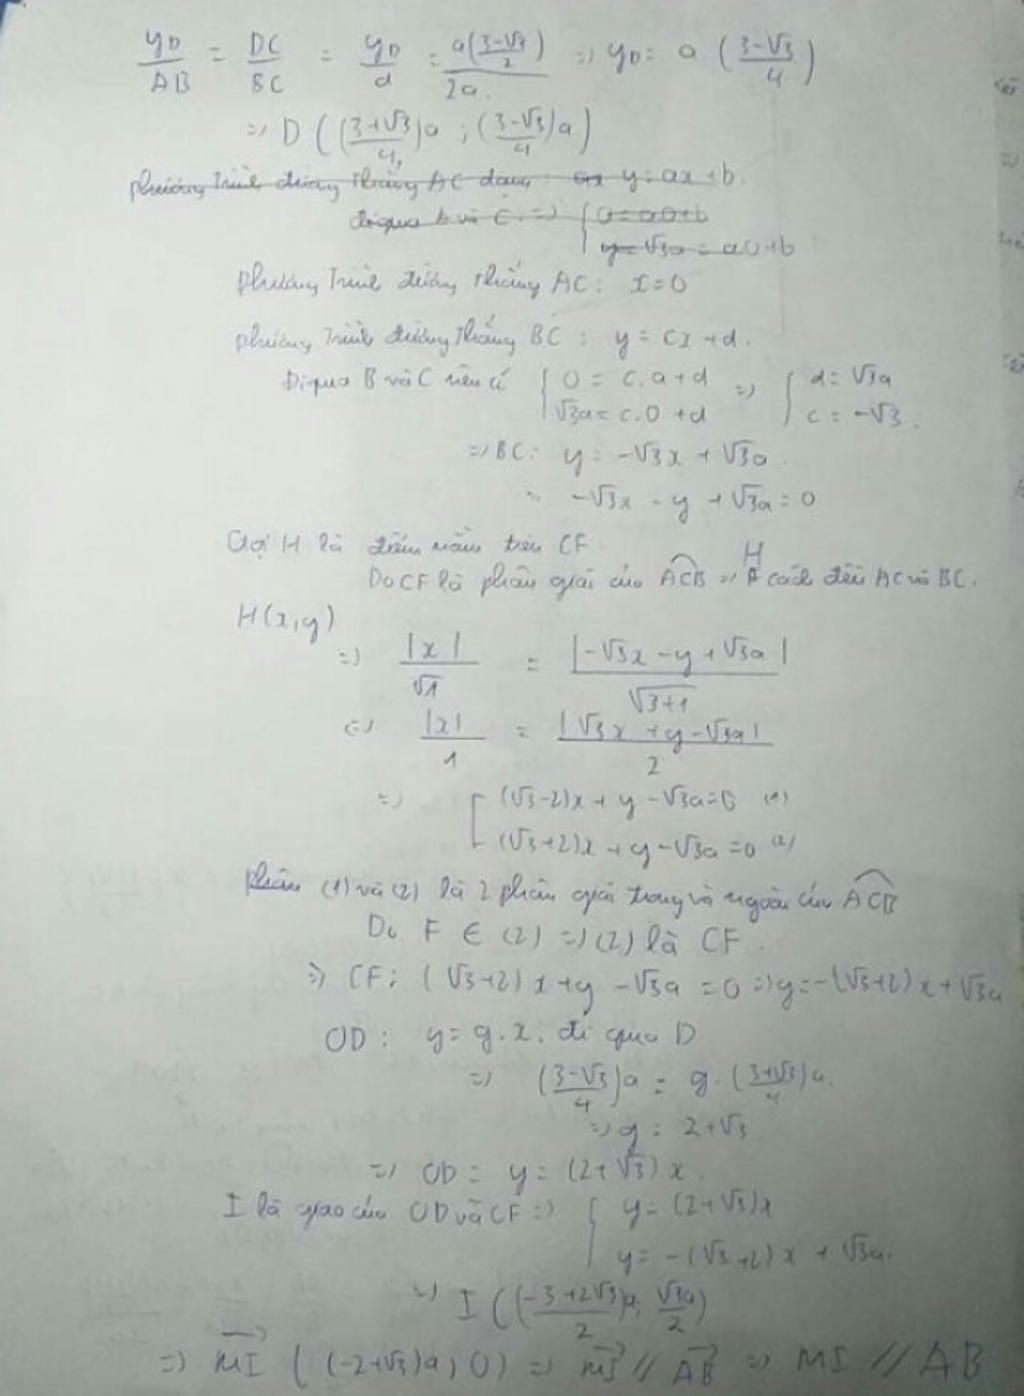 yD/AB = DC/BC = yD/a = a((3-√3)/2)/2a. => yD = a((3-√3)/4)
=> D(((3+√3)/4)a ; ((3-√3)/4)a)
phương trình đường thẳng AC dạng: ax y = ax + b.
đi qua A và C => { 0 = a0+b
y = √3a = a0+b
phương trình đường thẳng AC: x=0
phương trình đường thẳng BC: y = cx + d.
Đi qua B và C nên có { 0 = c.a+d => { d = √3a
√3a = c.0 + d c = -√3.
=> BC: y = -√3x + √3a.
-√3x - y + √3a = 0
Gọi H là điểm nằm trên CF.
Do CF là phân giác của ACB => H cách đều AC và BC.
H(x,y)
=> |x|/√1 = |-√3x - y + √3a|/√3+1
<=> |x|/1 = |√3x + y - √3a|/2
=> [ (√3-2)x + y - √3a = 0 (1)
(√3+2)x + y - √3a = 0 (2)
(1) và (2) là 2 phân giác trong và ngoài của ACB
Do F ∈ (2) => (2) là CF.
=> CF: (√3+2)x + y - √3a = 0 => y = -(√3+2)x + √3a
OD: y = g.x. đi qua D
=> ((3-√3)/4)a = g.((3+√3)/4)a.
=> g = 2+√3
=> OD: y = (2+√3)x.
I là giao của OD và CF => { y = (2+√3)x
y = -(√3+2)x + √3a.
=> I(((-3+2√3)/2)a; √3a/2)
=> MI ((-2+√3)a; 0) => MI // AB => MI // AB